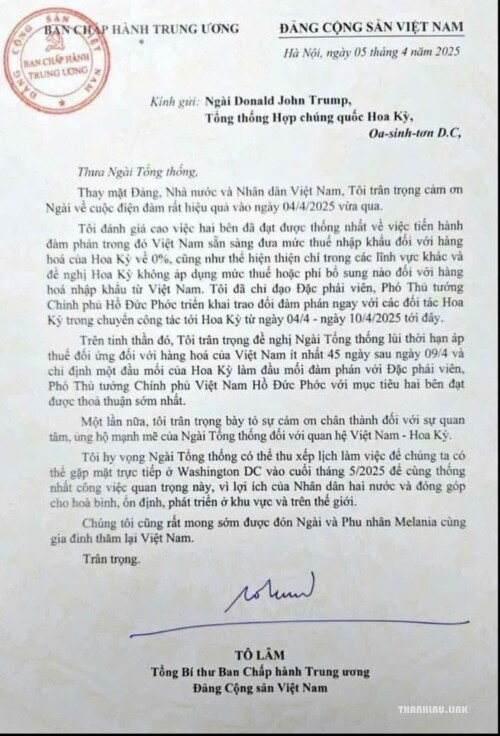 BAN CHẤP HÀNH TRUNG ƯƠNG
ĐẢNG CỘNG SẢN VIỆT NAM
ĐẢNG CỘNG SẢN VIỆT NAM
BAN CHẤP HÀNH
TRUNG ƯƠNG
Hà Nội, ngày 05 tháng 4 năm 2025
Kính gửi: Ngài Donald John Trump,
Tổng thống Hợp chúng quốc Hoa Kỳ,
Oa-sinh-tơn D.C,
Thưa Ngài Tổng thống,
Thay mặt Đảng, Nhà nước và Nhân dân Việt Nam, Tôi trân trọng cảm ơn
Ngài về cuộc điện đàm rất hiệu quả vào ngày 04/4/2025 vừa qua.
Tôi đánh giá cao việc hai bên đã đạt được thống nhất về việc tiến hành
đàm phán trong đó Việt Nam sẵn sàng đưa mức thuế nhập khẩu đối với hàng
hoá của Hoa Kỳ về 0%, cũng như thể hiện thiện chí trong các lĩnh vực khác và
đề nghị Hoa Kỳ không áp dụng mức thuế hoặc phí bổ sung nào đối với hàng
hoá nhập khẩu từ Việt Nam. Tôi đã chỉ đạo Đặc phái viên, Phó Thủ tướng
Chính phủ Hồ Đức Phớc triển khai trao đổi đàm phán ngay với các đối tác Hoa
Kỳ trong chuyến công tác tới Hoa Kỳ từ ngày 04/4 - ngày 10/4/2025 tới đây.
Trên tinh thần đó, Tôi trân trọng đề nghị Ngài Tổng thống lùi thời hạn áp
thuế đối ứng đối với hàng hoá của Việt Nam ít nhất 45 ngày sau ngày 09/4 và
chỉ định một đầu mối của Hoa Kỳ làm đầu mối đàm phán với Đặc phái viên,
Phó Thủ tướng Chính phủ Việt Nam Hồ Đức Phớc với mục tiêu hai bên đạt
được thoả thuận sớm nhất.
Một lần nữa, tôi trân trọng bày tỏ sự cảm ơn chân thành đối với sự quan
tâm, ủng hộ mạnh mẽ của Ngài Tổng thống đối với quan hệ Việt Nam - Hoa Kỳ.
Tôi hy vọng Ngài Tổng thống có thể thu xếp lịch làm việc để chúng ta có
thể gặp mặt trực tiếp ở Washington DC vào cuối tháng 5/2025 để cùng thống
nhất công việc quan trọng này, vì lợi ích của Nhân dân hai nước và đóng góp
cho hoà bình, ổn định, phát triển ở khu vực và trên thế giới.
Chúng tôi cũng rất mong sớm được đón Ngài và Phu nhân Melania cùng
gia đình thăm lại Việt Nam.
Trân trọng.
TÔ LÂM
Tổng Bí thư Ban Chấp hành Trung ương
Đảng Cộng sản Việt Nam
THANHLNU.UNK